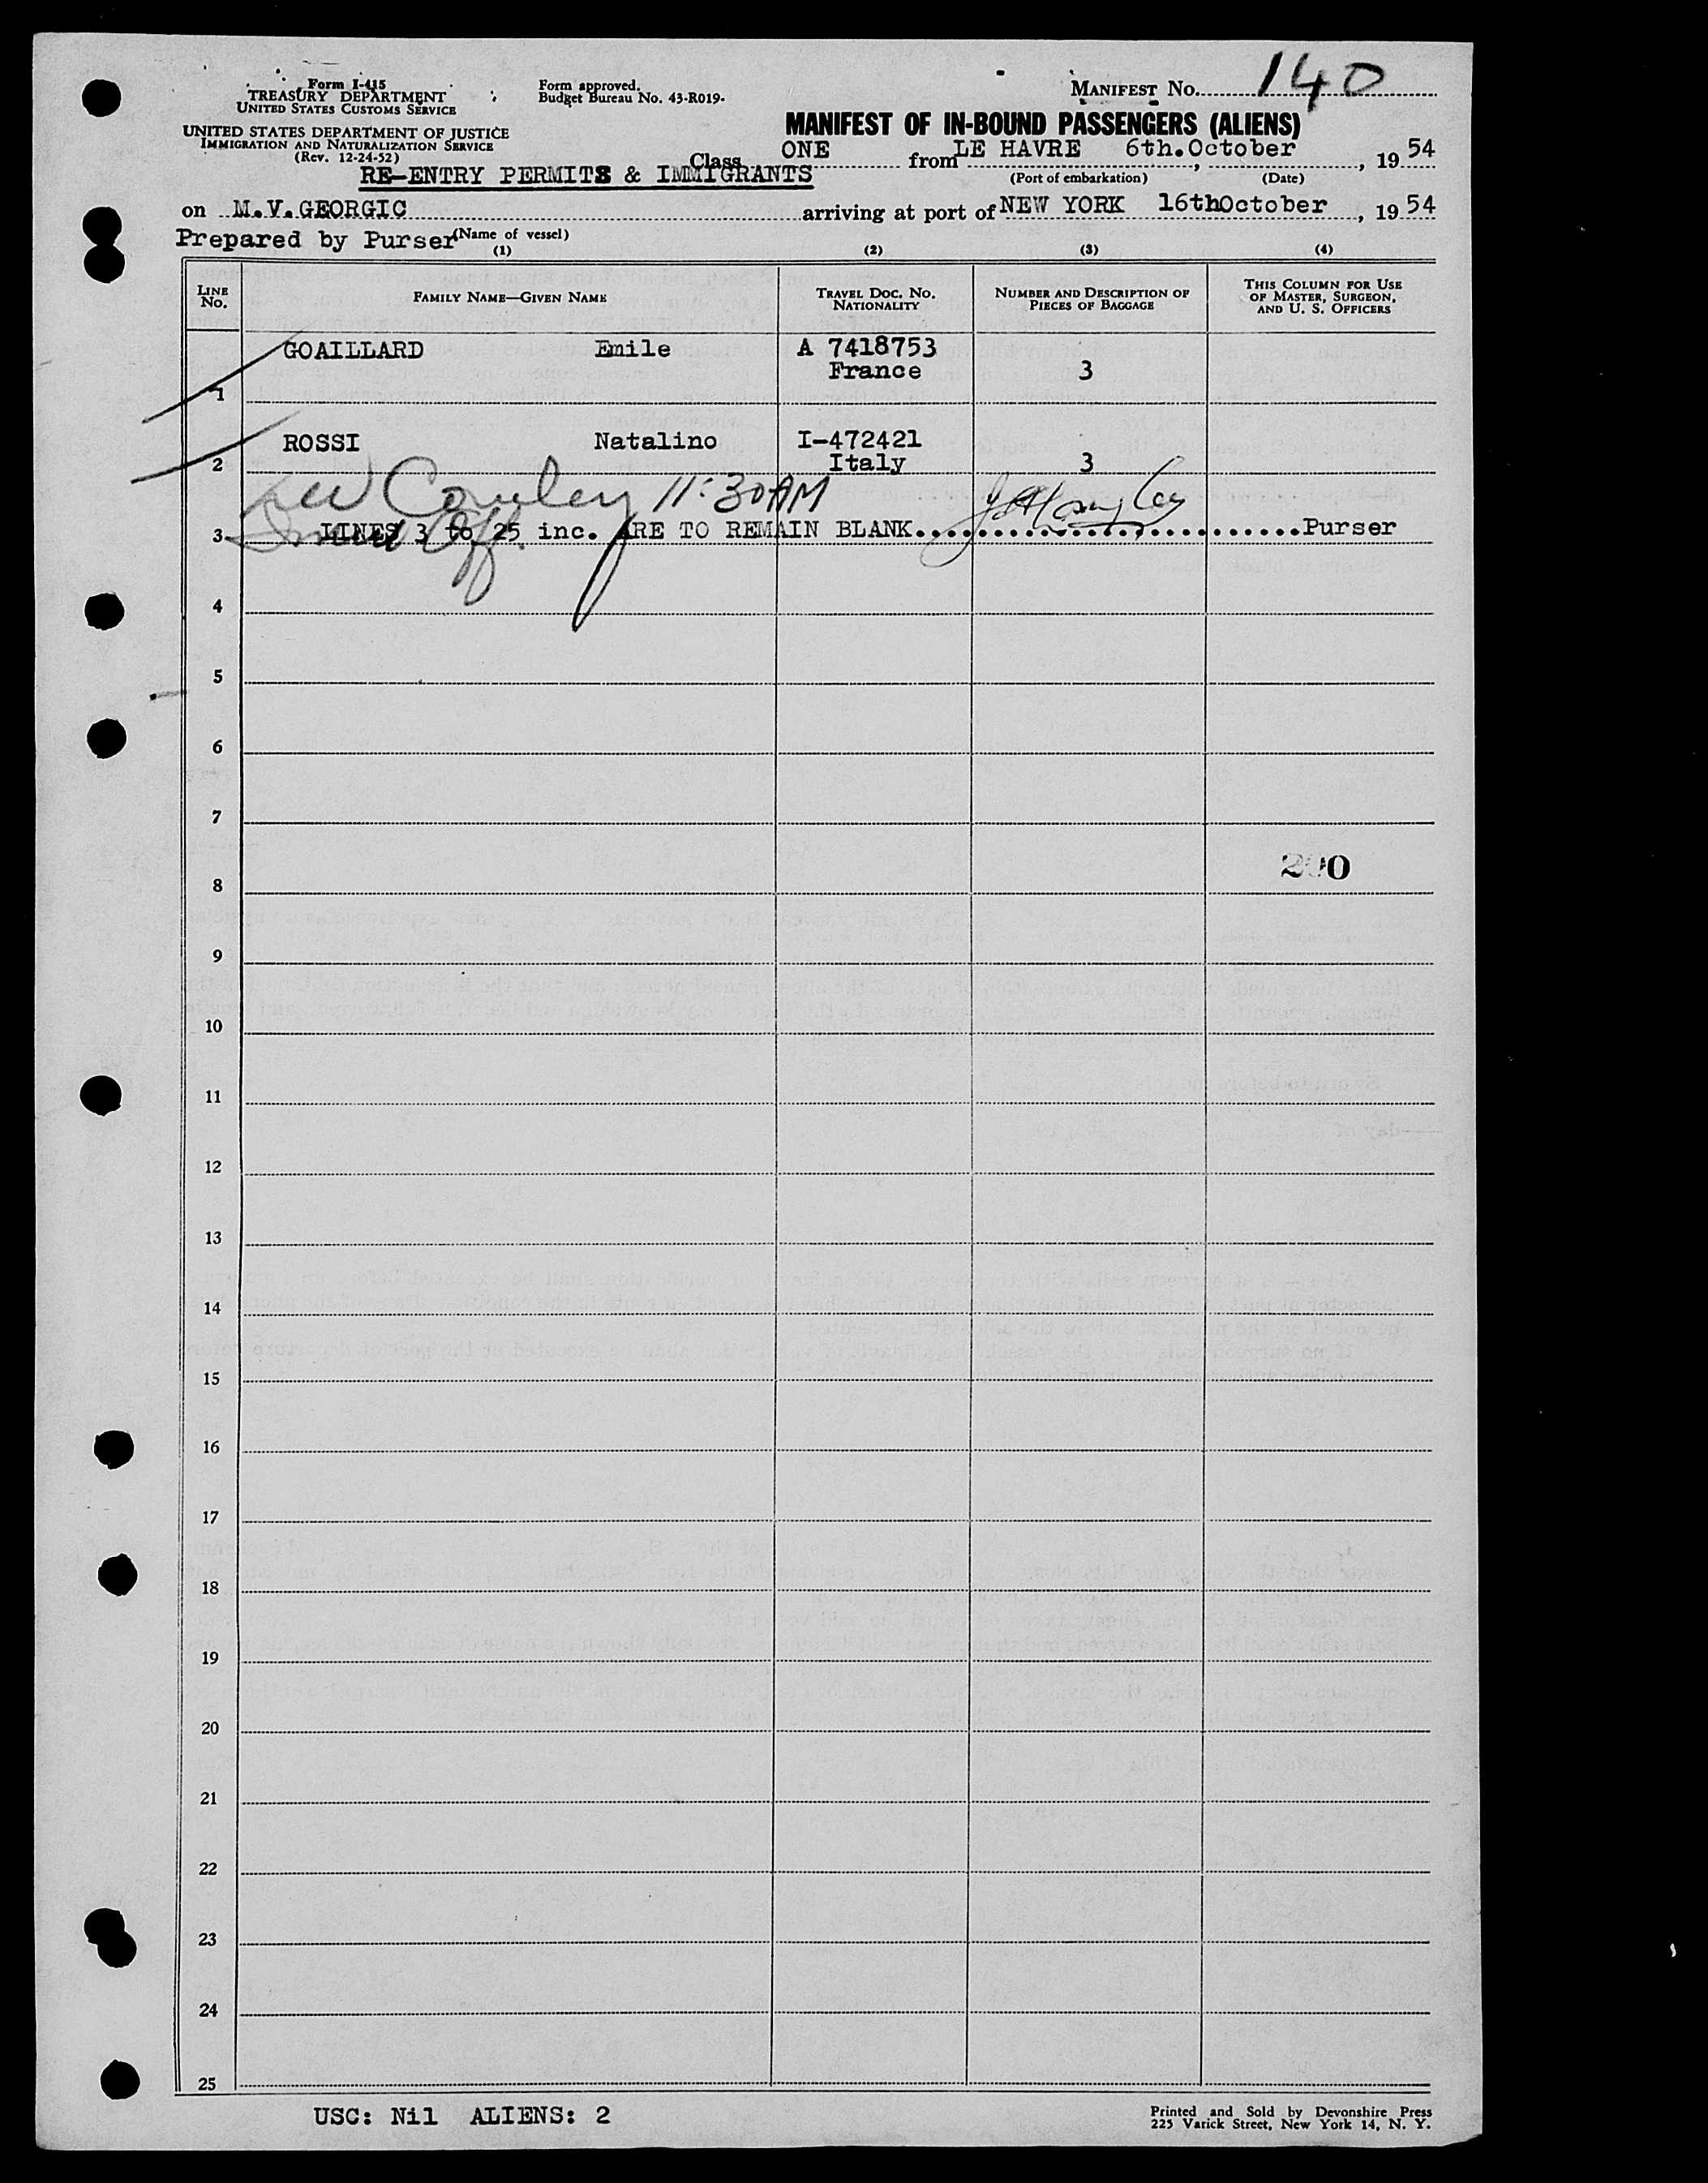 Form I-415
TREASURY DEPARTMENT
UNITED STATES CUSTOMS SERVICE
UNITED STATES DEPARTMENT OF JUSTICE
IMMIGRATION AND NATURALIZATION SERVICE
(Rev. 12-24-52)
Form approved.
Budget Bureau No. 43-R019.
MANIFEST NO. 140
MANIFEST OF IN-BOUND PASSENGERS (ALIENS)
Class ONE from LE HAVRE 6th.October, 19 54
(Port of embarkation) (Date)
RE-ENTRY PERMITS & IMMIGRANTS
on M.V.GEORGIC arriving at port of NEW YORK 16thOctober, 19 54
Prepared by Purser (Name of vessel)
(1) (2) (3) (4)
LINE NO. FAMILY NAME—GIVEN NAME TRAVEL DOC. NO. NATIONALITY NUMBER AND DESCRIPTION OF PIECES OF BAGGAGE THIS COLUMN FOR USE OF MASTER, SURGEON, AND U. S. OFFICERS
1 GOAILLARD Emile A 7418753 France 3
2 ROSSI Natalino I-472421 Italy 3
Cowley 11:30AM
Off.
3 LINES 3 to 25 inc. ARE TO REMAIN BLANK. Purser
4
5
6
7
8
9
10
11
12
13
14
15
16
17
18
19
20
21
22
23
24
25
USC: Nil ALIENS: 2
Printed and Sold by Devonshire Press
225 Varick Street, New York 14, N. Y.